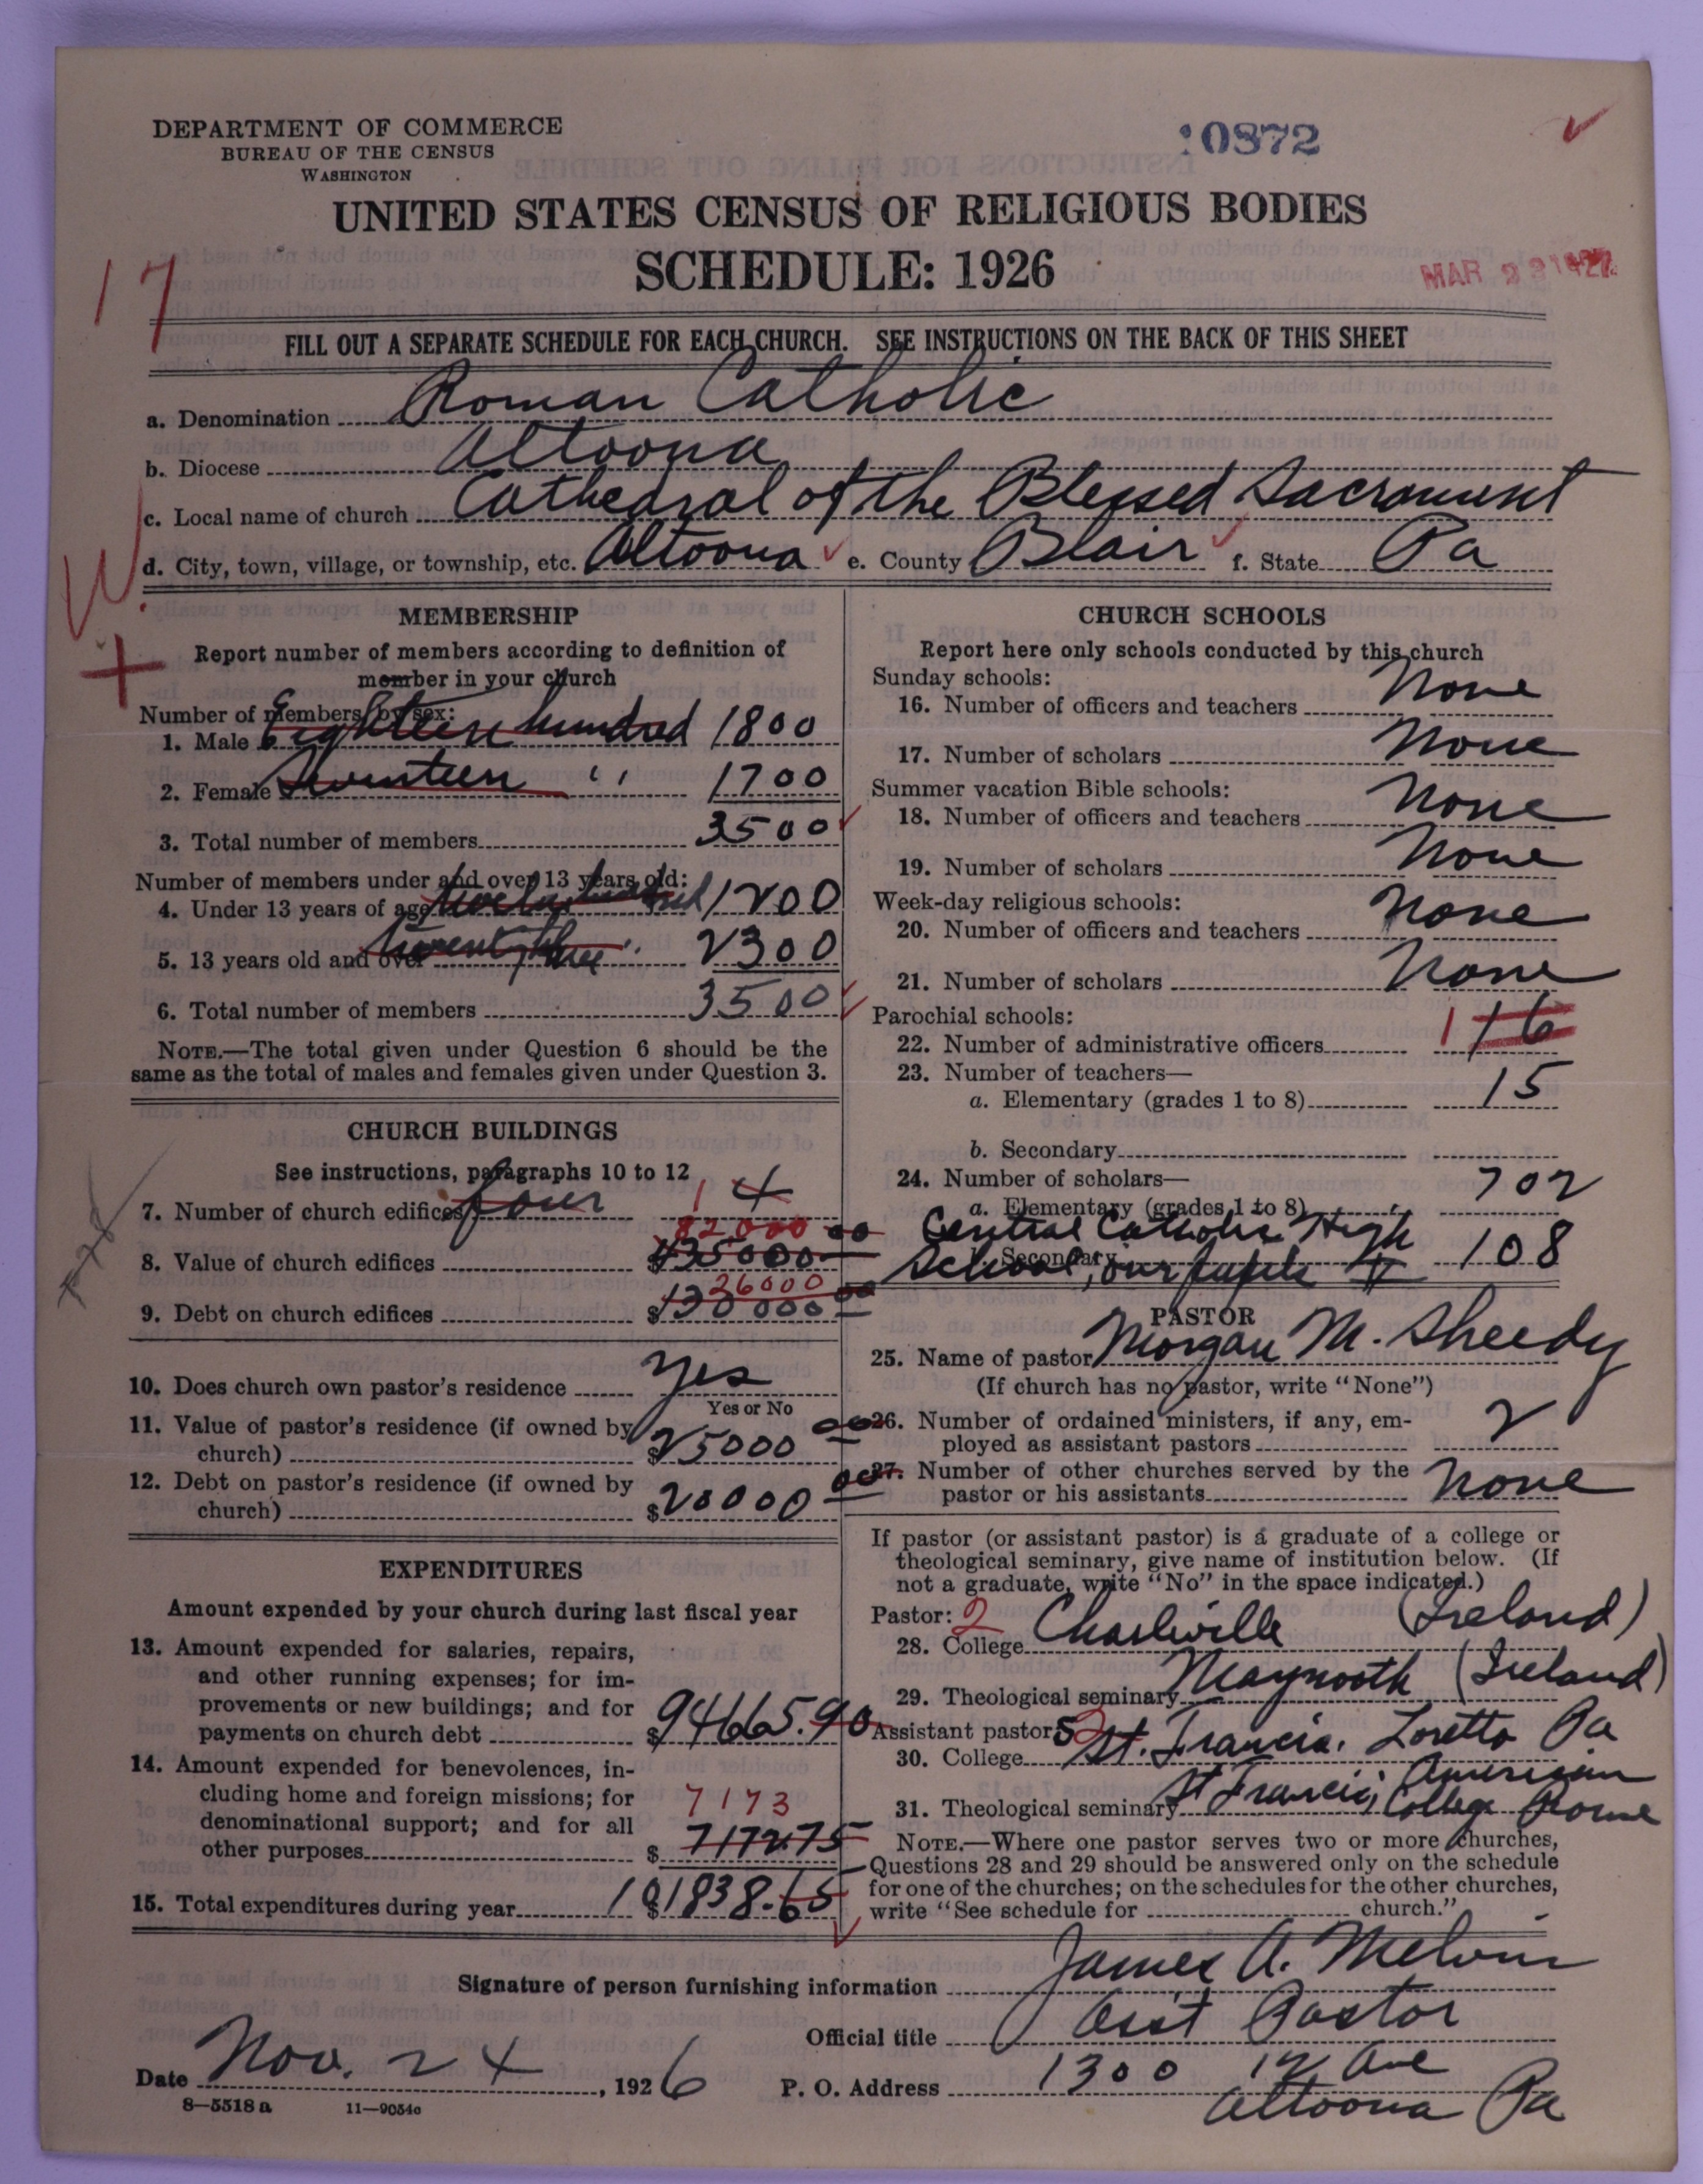 DEPARTMENT OF COMMERCE
BUREAU OF THE CENSUS
WASHINGTON
10872
UNITED STATES CENSUS OF RELIGIOUS BODIES
SCHEDULE: 1926
MAR 23 1927
17
FILL OUT A SEPARATE SCHEDULE FOR EACH CHURCH. SEE INSTRUCTIONS ON THE BACK OF THIS SHEET
a. Denomination Roman Catholic
b. Diocese Altoona
c. Local name of church Cathedral of the Blessed Sacrament
d. City, town, village, or township, etc. Altoona e. County Blair f. State Pa
MEMBERSHIP
Report number of members according to definition of
member in your church
Number of members by sex:
1. Male Eighteen hundred 1800
2. Female Seventeen " 1700
3. Total number of members 3500
Number of members under and over 13 years old:
4. Under 13 years of age Twelve hundred 1200
5. 13 years old and over Twenty three " 2300
6. Total number of members 3500
NOTE.—The total given under Question 6 should be the
same as the total of males and females given under Question 3.
CHURCH BUILDINGS
See instructions, paragraphs 10 to 12
7. Number of church edifices four 1 4
82000
8. Value of church edifices $435000 00
26000
9. Debt on church edifices $130000 00
10. Does church own pastor's residence Yes
Yes or No
11. Value of pastor's residence (if owned by
church) $25000 00
12. Debt on pastor's residence (if owned by
church) $20000 00
EXPENDITURES
Amount expended by your church during last fiscal year
13. Amount expended for salaries, repairs,
and other running expenses; for im-
provements or new buildings; and for
payments on church debt $94665.90
14. Amount expended for benevolences, in-
cluding home and foreign missions; for
7173
denominational support; and for all
other purposes $7172.75
15. Total expenditures during year $101838.65
CHURCH SCHOOLS
Report here only schools conducted by this church
Sunday schools:
16. Number of officers and teachers None
17. Number of scholars None
Summer vacation Bible schools:
18. Number of officers and teachers None
19. Number of scholars None
Week-day religious schools:
20. Number of officers and teachers None
21. Number of scholars None
Parochial schools:
22. Number of administrative officers 1 16
23. Number of teachers—
a. Elementary (grades 1 to 8) 15
b. Secondary
24. Number of scholars—
a. Elementary (grades 1 to 8) 702
Central Catholic High
Secondary 108
School, our pupils
PASTOR
25. Name of pastor Morgan M. Sheedy
(If church has no pastor, write "None")
26. Number of ordained ministers, if any, em-
ployed as assistant pastors 2
27. Number of other churches served by the
pastor or his assistants None
If pastor (or assistant pastor) is a graduate of a college or
theological seminary, give name of institution below. (If
not a graduate, write "No" in the space indicated.)
Pastor: 2
28. College Charleville (Ireland)
29. Theological seminary Maynooth (Ireland)
Assistant pastor:
30. College St. Francis, Loretto Pa
31. Theological seminary St Francis; American College Rome
NOTE.—Where one pastor serves two or more churches,
Questions 28 and 29 should be answered only on the schedule
for one of the churches; on the schedules for the other churches,
write "See schedule for church."
Signature of person furnishing information James A. Melvin
Official title Ass't Pastor
Date Nov. 24, 1926
P. O. Address 1300 12 Ave
Altoona Pa
8—5518 a 11—9054c